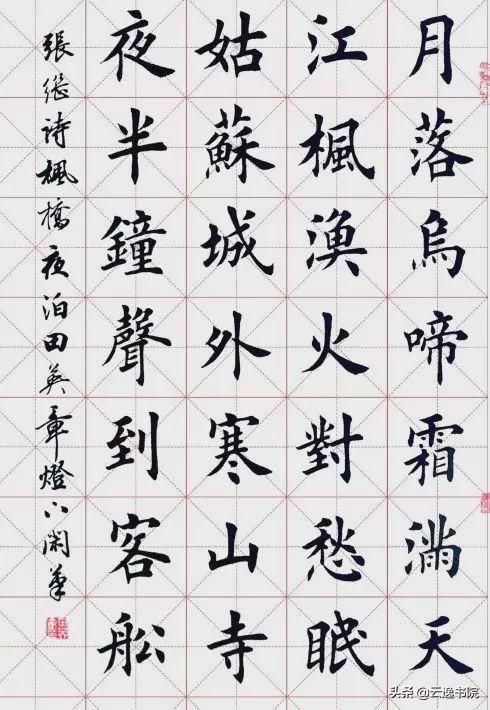 月落烏啼霜滿天
江楓漁火對愁眠
姑蘇城外寒山寺
夜半鐘聲到客船
張继诗楓橋夜泊田英章燈下闲筆
头条@云逸书院